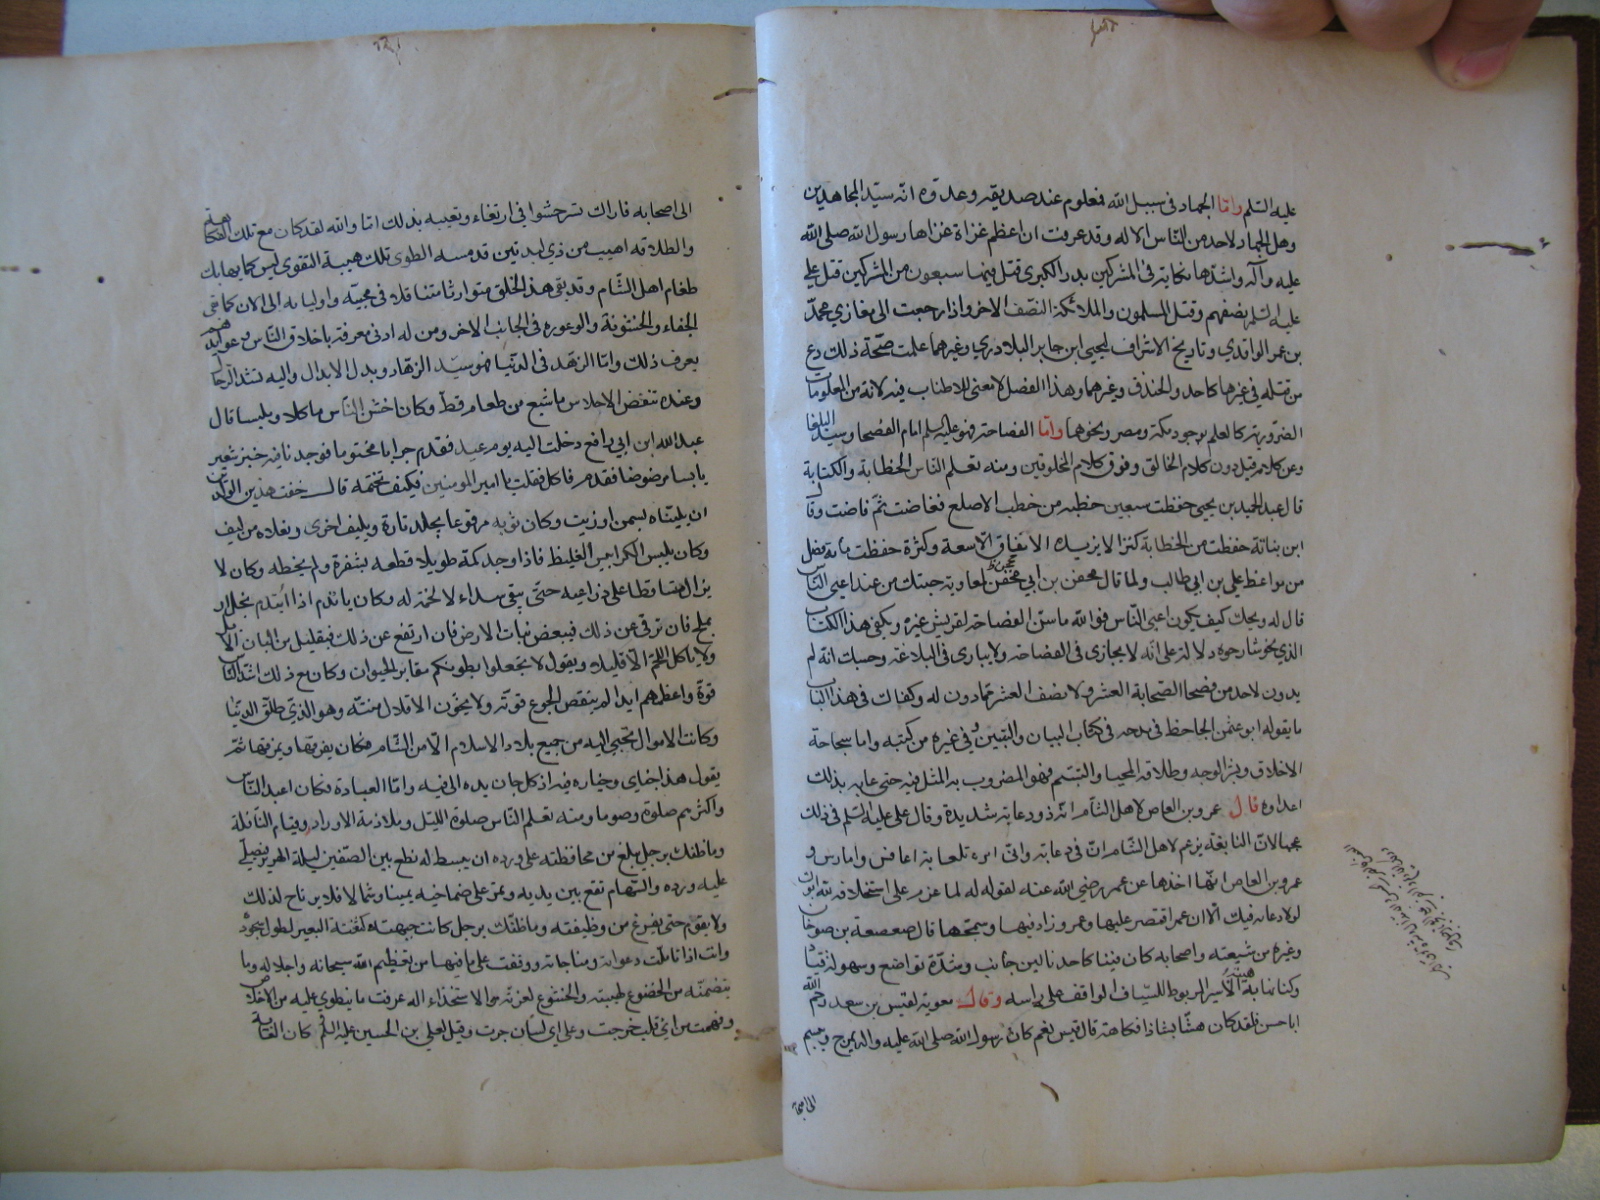 عليه السلم واما الجهاد في سبيل الله فمعلوم عند صديقه وعدوه انه سيد المجاهدين
وهل الجهاد لاحد من الناس الا له وقد عرفت ان اعظم غزاة غزاها رسول الله صلى الله
عليه وآله واشدها نكاية في المشركين بدر الكبرى قتل فيها سبعون من المشركين قتل علي
عليه السلم نصفهم وقتل المسلمون والملائكة النصف الاخر واذا رجعت الى مغازي محمد
بن عمر الواقدي وتاريخ الاشراف ليحيى ابن جابر البلاذري وغيرهما علمت صحة ذلك دع
من قتله في غيرها كاحد والخندق وغيرهما وهذا الفصل لا معنى للاطناب فيه لانه من المعلومات
الضرورية كالعلم بوجود مكة ومصر ونحوهما واما الفصاحة فهو عليه السلم امام الفصحا وسيد البلغا
وعن كلامه قيل دون كلام الخالق وفوق كلام المخلوقين ومنه تعلم الناس الخطابة والكتابة
قال عبد الحميد بن يحيى حفظت سبعين خطبة من خطب الاصلع ففاضت ثم فاضت وقال
ابن نباتة حفظت من الخطابة كنزا لا يزيده الانفاق الا سعة وكثرة حفظت ماية فصل
من مواعظ علي بن ابي طالب ولما قال محفن بن ابي محفن لمعاوية جيتك من عند اعيى الناس
قال له ويحك كيف يكون اعيى الناس فوالله ما سن الفصاحة لقريش غيره ويكفي هذا الكتاب
الذي نحو شارحوه دلالة على انه لا يجارى في الفصاحة ولا يبارى في البلاغة وحسبك انه لم
يدون لاحد من فصحا الصحابة العشر ولا نصف العشر مما دون له وكفاك في هذا الباب
ما يقوله ابو عثمن الجاحظ في مدحه في كتاب البيان والتبيين وفي غيره من كتبه واما سجاحة
الاخلاق وبشر الوجه وطلاقة المحيا والتبسم فهو المضروب به المثل فيه حتى عابه بذلك
اعداوه قال عمرو بن العاص لاهل الشام انه ذو دعابة شديدة وقال علي عليه السلم في ذلك
عجبا لابن النابغة يزعم لاهل الشام ان في دعابة واني امرء تلعابة اعافس وامارس و
عمرو بن العاص انما اخذها عن عمر رضي الله عنه لقوله له لما عزم على استخلافه لله ابوك
لولا دعابة فيك الا ان عمر اقتصر عليها وعمرو زاد فيها وسمجها قال صعصعة بن صوحان
وغيره من شيعته واصحابه كان فينا كاحدنا لين جانب وشدة تواضع وسهولة قياد
وكنا نهابه مهابة الاسير المربوط للسياف الواقف على راسه وقال معوية لقيس بن سعد رحم الله
ابا حسن فلقد كان هشا بشا ذا فكاهة قال قيس نعم كان رسول الله صلى الله عليه واله يمزح ويبسم
الى اصحابه
الى اصحابه فاراك تسر حسوا في ارتغاء وتعيبه بذلك اما والله لقد كان مع تلك الفكاهة
والطلاقة اهيب من ذي لبدتين قد مسه الطوى تلك هيبة التقوى ليس كما يهابك
طغام اهل الشام وقد بقي هذا الخلق متوارثا متناقلا في محبيه واوليايه الى الان كما بقي
الجفاء والخشونة والوعورة في الجانب الاخر ومن له ادنى معرفة باخلاق الناس وعوايدهم
يعرف ذلك واما الزهد في الدنيا فهو سيد الزهاد وبدل الابدال واليه تشد الرحال
وعنده تنفض الاحلاس ما شبع من طعام قط وكان اخشن الناس ماكلا وملبسا قال
عبد الله ابن ابي رافع دخلت اليه يوم عيد فقدم جرابا مختوما فوجدنا فيه خبز شعير
يابسا مرضوضا فقدم فاكل فقلت يا امير المومنين فكيف تختمه قال خفت هذين الولدين
ان يلتاه بسمن او زيت وكان ثوبه مرقوعا بجلد تارة وبليف اخرى ونعلاه من ليف
وكان يلبس الكرابيس الغليظ فاذا وجد كمه طويلا قطعه بشفرة ولم يخطه وكان لا
يزال متساقطا على ذراعيه حتى يبقى سداء لا لحمة له وكان ياتدم اذا ائتدم بخل او
بملح فان ترقى عن ذلك فببعض نبات الارض فان ارتفع عن ذلك فبقليل من البان الابل
ولا ياكل اللحم الا قليلا ويقول لا تجعلوا بطونكم مقابر الحيوان وكان مع ذلك اشد الناس
قوة واعظمهم ايدا لم ينقص الجوع قوته ولا يخون الاقلال منته وهو الذي طلق الدنيا
وكانت الاموال تجبى اليه من جميع بلاد الاسلام الا من الشام فكان يفرقها ويمزقها ثم
يقول هذا جناي وخياره فيه اذ كل جان يده الى فيه واما العبادة فكان اعبد الناس
واكثرهم صلوة وصوما ومنه تعلم الناس صلوة الليل وملازمة الاوراد وقيام النافلة
وما ظنك برجل يبلغ من محافظته على ورده ان يبسط له نطع بين الصفين ليلة الهرير فيصلي
عليه ورده والسهام تقع بين يديه وتمر على صماخيه يمينا وشمالا فلا يرتاح لذلك
ولا يقوم حتى يفرغ من وظيفته وما ظنك برجل كانت جبهته كثفنة البعير لطول سجوده
وانت اذا تاملت دعواته ومناجاته ووقفت على ما فيها من تعظيم الله سبحانه واجلاله وما
يتضمنه من الخضوع لهيبته والخشوع لعزته والاستخذاء له عرفت ما ينطوي عليه من الاخلاص
وفهمت من اي قلب خرجت وعلى اي لسان جرت وقيل لعلي بن الحسين عليه السلم كان الغاية